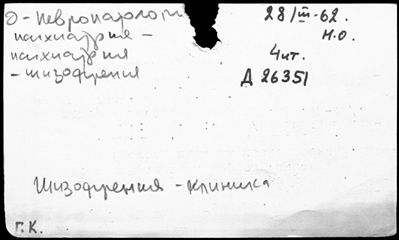 О - Невропатологи
психиатрия -
психиатрия
- шизофрения
28/III-62.
н.о.
Чит.
Д 26351
Шизофрения - клиника
Г.К.